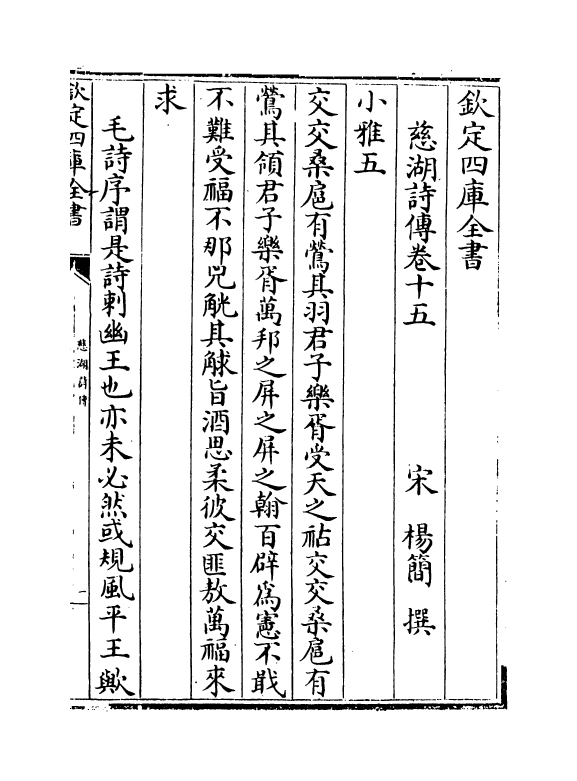 欽定四庫全書
慈湖詩傳卷十五
宋 楊簡 撰
小雅五
交交桑扈有鶯其羽君子樂胥受天之祜交交桑扈有
鶯其領君子樂胥萬邦之屏之屏之翰百辟為憲不戢
不難受福不那兕觥其觩旨酒思柔彼交匪敖萬福來
求
毛詩序謂是詩刺幽王也亦未必然或規風平王歟
欽定四庫全書
慈湖詩傳
一